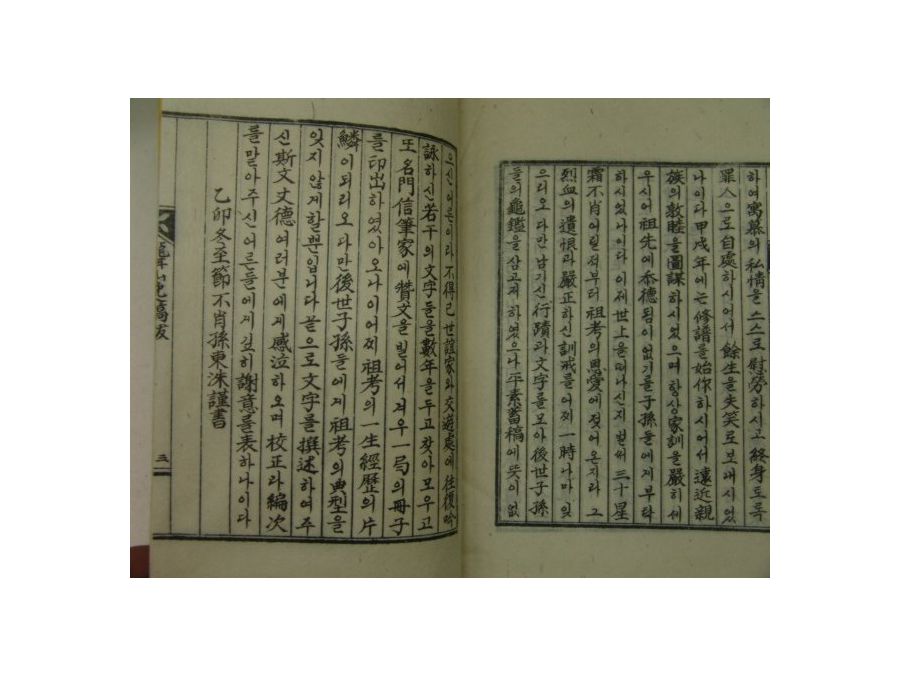 하여寓慕의私情을스스로慰勞하시고終身토록
罪人으로自處하시어서餘生을失笑로보내시었
나이다甲戌年에는修譜를始作하시어서遠近親
族의敦睦을圖謀하시었으며항상家訓을嚴히세
우시어祖先에忝德됨이없기를子孫들에게부탁
하시었나이다이제世上을떠나신지벌써三十星
霜不肖어릴적부터祖考의恩愛에젖어온지라그
烈血의遺恨과嚴正하신訓戒를어찌一時나마잊
으리오다만남기신行蹟과文字를모아後世子孫
들의龜鑑을삼고저하였으나平素蓄稿에뜻이없
으신어른이라不得已世誼家와交遊處에往復吟
詠하신若干의文字들을數年을두고찾아모우고
또名門信筆家에贊文을빌어서겨우一局의冊子
를印出하였아오나이어찌祖考의一生經歷의片
鱗이되리오다만後世子孫들에게祖考의典型을
잊지않게할뿐입니다끝으로文字를撰述하여주
신斯文丈德여러분에게感泣하오며校正과編次
를맡아주신어른들에게깊히謝意를表하나이다
乙卯冬至節不肖孫東洙謹書
三